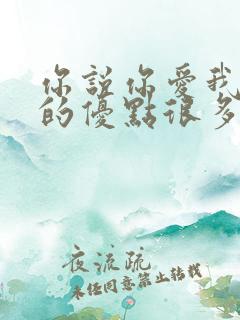 你說你愛我
的優點很多
夜流疏
未任同意禁止转载